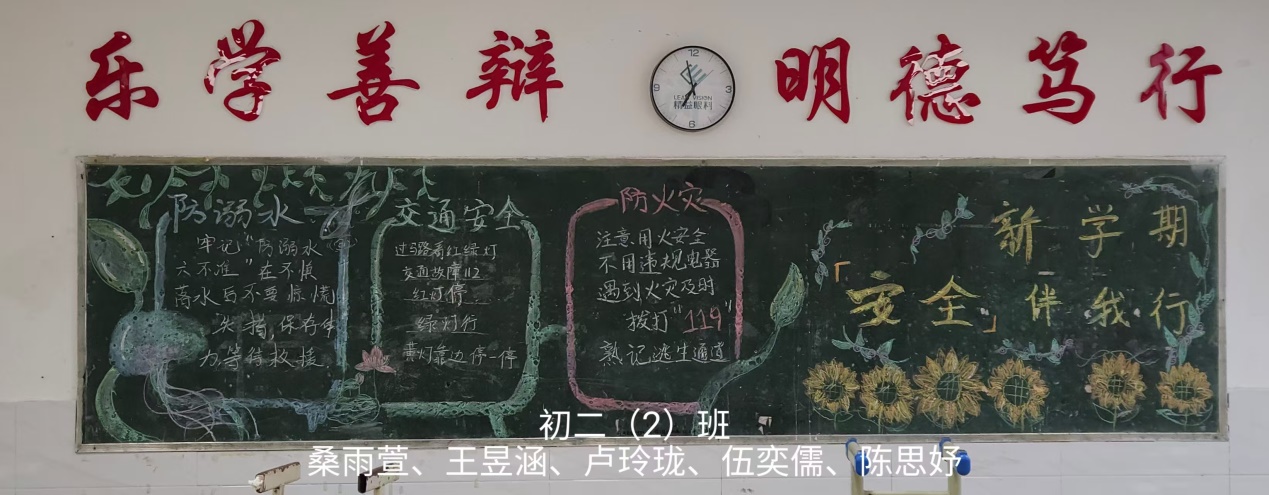 乐学善辩 明德笃行
12
3
6
9
LEAD VISION
精益眼利
防溺水
牢记“防溺水
六不准”在不慎
落水后不要惊慌
失措,保存体
力等待救援
交通安全
过马路看红绿灯
交通故障112
红灯停
绿灯行
黄灯靠边停一停
防火灾
注意用火安全
不用违规电器
遇到火灾及时
拨打“119”
熟记逃生通道
新学期
「安全」伴我行
初二（2）班
桑雨萱、王昱涵、卢玲珑、伍奕儒、陈思妤